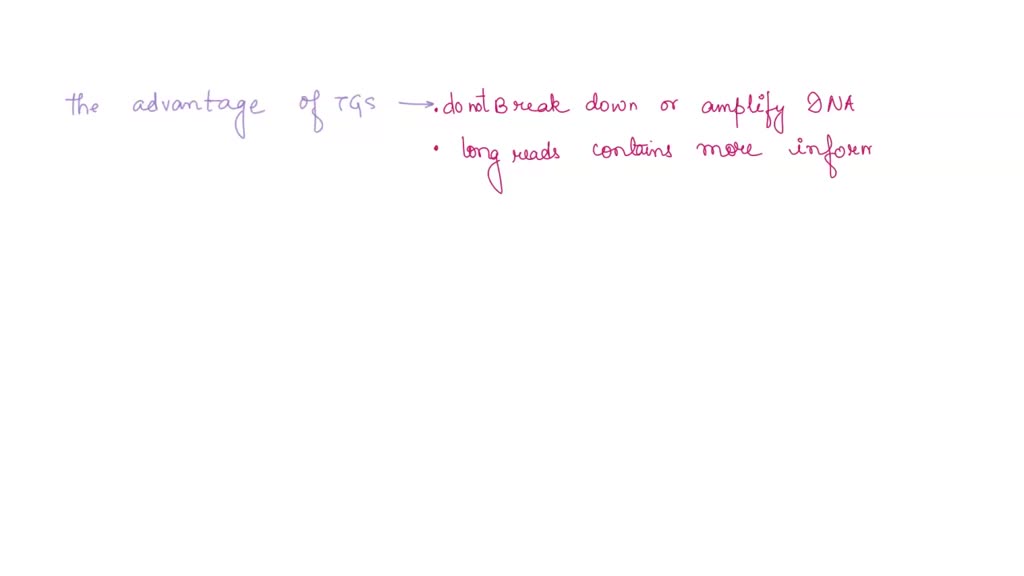 the advantage of TGS → • do not Break down or amplify DNA
• long reads contains more inform